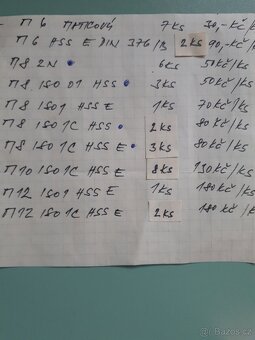 - M 6 MATICOVÝ 7KS 30,-KČ/KS
M 6 HSS E DIN 376/B 2KS 90,-KČ/KS
M8 2N 6KS 50KČ/KS
M 8 ISO 01 HSS 3KS 50KČ/KS
M 8 ISO1 HSSE 1KS 70KČ/KS
M 8 ISO 1C HSS 2KS 80KČ/KS
M8 ISO 1C HSS E 3KS 80KČ/KS
M10 ISO 1C HSS E 8KS 130KČ/KS
M12 ISO1 HSS E 1KS 180KČ/KS
M12 ISO 1C HSS E 2KS 180KČ/KS
Bazos.cz